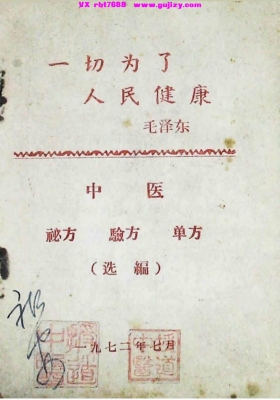 VX rbt7688 www.gujizy.com
一切为了
人民健康
毛泽东
中医
祕方 驗方 单方
(选編)
一九七二年七月